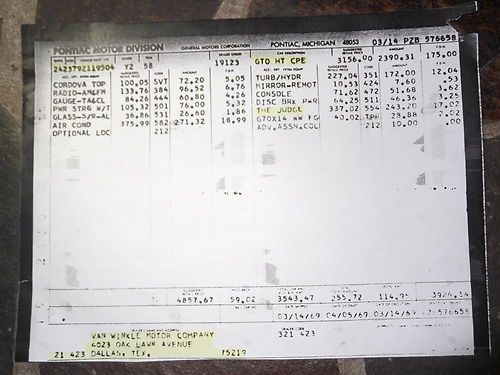 PONTIAC MOTOR DIVISION GENERAL MOTORS CORPORATION PONTIAC, MICHIGAN 48053 03/14 PZB 576658
242379Z119504 72 58 19123 GTO HT CPE 3156.00 2390.31 175.00
CORDOVA TOP 100.05 SVT 72.20 5.05 TURB/HYDR 227.04 351 172.00 12.04
RADIO-AMPFM 133.76 384 96.52 6.76 MIRROR-REMOT 10.53 424 7.60 .53
GAUGE-TA&CL 84.26 444 60.80 4.26 CONSOLE 71.62 472 51.68 3.62
PWR STRG W/T 105.32 501 76.00 5.32 DISC BRK PWR 64.25 511 46.36 3.25
GLASS-S/R-AL 36.86 531 26.60 1.86 THE JUDGE 337.02 554 243.20 17.02
AIR COND 375.99 582 271.32 18.99 G70X14 WW FG 40.02 TPR 28.88 2.02
OPTIONAL LOC 212 ADV.ASSN.COL 212 10.00 .00
4857.67 59.02 3543.47 255.72
03/14/69 04/05/69 03/14/69
DEALER NAME AND ADDRESS DEALER CODE
VAN WINKLE MOTOR COMPANY 321 423
4023 OAK LAWN AVENUE
21 423 DALLAS, TEX. 75219